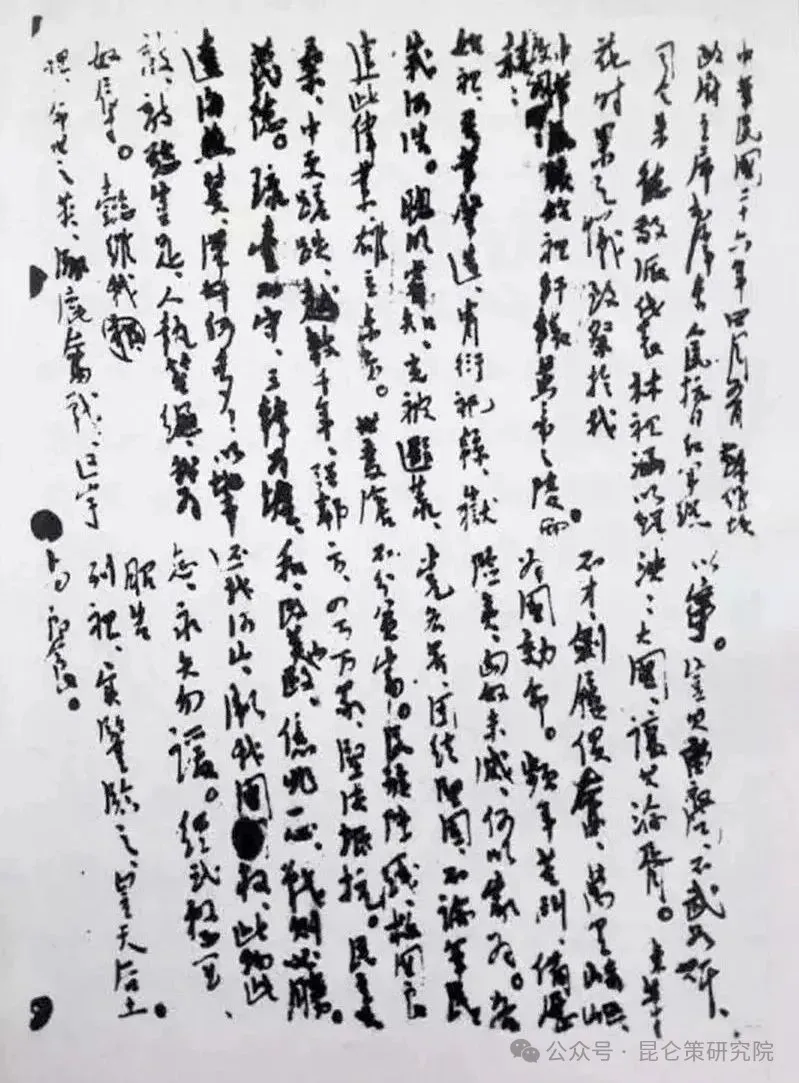 中華民國二十六年四月五日 蘇維埃
政府主席毛澤東人民抗日紅軍總
司令朱德敬派代表林祖涵以鮮
花時果之儀致祭於我
中華民族始祖軒轅黃帝之陵而
始祖、吾華肇造、胄衍祀緜、嶽
峨河浩。聰明睿知、光被遐荒、
建此偉業、雄立東方。世變滄
桑、中更蹉跌、越數千年、强鄰
蔑德。琉臺不守、三韓爲墟、
遼海燕冀、漢奸何多、以地事
敵、敵欲豈足、人執笞繩、我爲
奴辱。懿維我
祖、命世之英、涿鹿奮戰、區宇
以寧。豈其苗裔、不武如斯、
泱泱大國、讓其淪胥。東等
不才、劍屨俱奮、萬里崎嶇、
爲國効命。頻年苦鬥、備歷
險夷、匈奴未滅、何以家爲。各
黨各界、團結堅固、不論軍民、
不分貧富。民族陣綫、救國良
方、四万万衆、堅決抵抗。民主共
和、改革内政、億兆一心、戰則必勝。
還我河山、衛我國權、此物此
志、永矢勿諼。經武整軍、
昭告
列祖、實鑒臨之、皇天后土。
尚饗。
公众号·昆仑策研究院